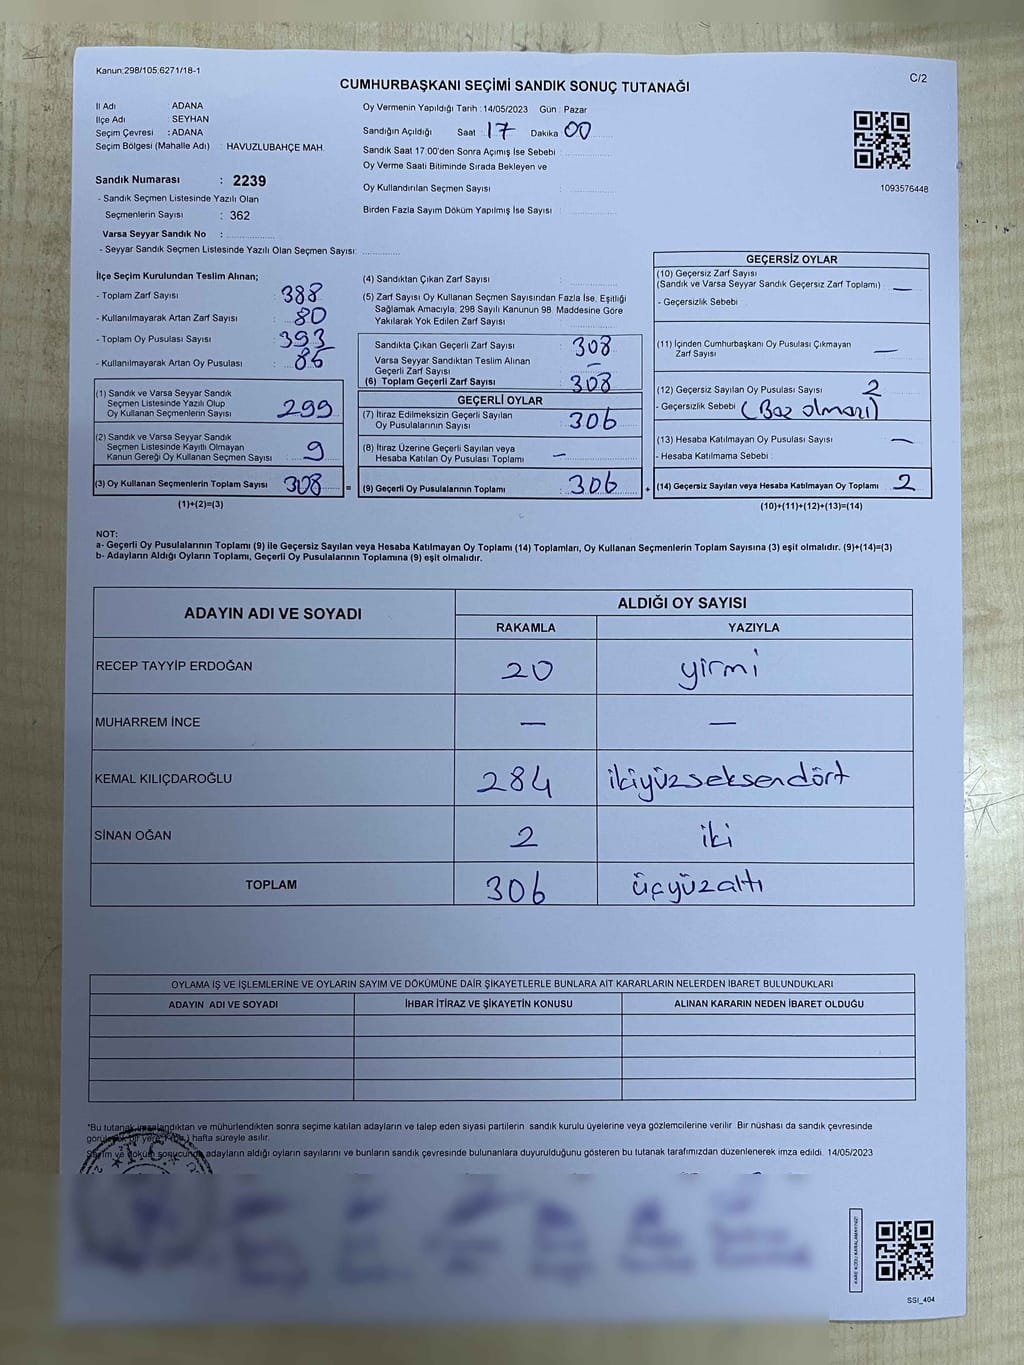 Kanun:298/105.6271/18-1
C/2
CUMHURBAŞKANI SEÇİMİ SANDIK SONUÇ TUTANAĞI
İl Adı : ADANA
İlçe Adı : SEYHAN
Seçim Çevresi : ADANA
Seçim Bölgesi (Mahalle Adı) : HAVUZLUBAHÇE MAH.
Sandık Numarası : 2239
- Sandık Seçmen Listesinde Yazılı Olan
Seçmenlerin Sayısı : 362
Varsa Seyyar Sandık No :
- Seyyar Sandık Seçmen Listesinde Yazılı Olan Seçmen Sayısı:
Oy Vermenin Yapıldığı Tarih : 14/05/2023 Gün : Pazar
Sandığın Açıldığı Saat : 17 Dakika 00
Sandık Saat 17.00'den Sonra Açımış İse Sebebi :
Oy Verme Saati Bitiminde Sırada Bekleyen ve
Oy Kullandırılan Seçmen Sayısı :
Birden Fazla Sayım Döküm Yapılmış İse Sayısı :
1093576448
İlçe Seçim Kurulundan Teslim Alınan;
- Toplam Zarf Sayısı : 388
- Kullanılmayarak Artan Zarf Sayısı : 80
- Toplam Oy Pusulası Sayısı : 393
- Kullanılmayarak Artan Oy Pusulası : 85
(1) Sandık ve Varsa Seyyar Sandık
Seçmen Listesinde Yazılı Olup
Oy Kullanan Seçmenlerin Sayısı : 299
(2) Sandık ve Varsa Seyyar Sandık
Seçmen Listesinde Kayıtlı Olmayan
Kanun Gereği Oy Kullanan Seçmen Sayısı : 9
(3) Oy Kullanan Seçmenlerin Toplam Sayısı : 308
(1)+(2)=(3)
=
(4) Sandıktan Çıkan Zarf Sayısı :
(5) Zarf Sayısı Oy Kullanan Seçmen Sayısından Fazla İse, Eşitliği
Sağlamak Amacıyla, 298 Sayılı Kanunun 98. Maddesine Göre
Yakılarak Yok Edilen Zarf Sayısı :
Sandıkta Çıkan Geçerli Zarf Sayısı : 308
Varsa Seyyar Sandıktan Teslim Alınan
Geçerli Zarf Sayısı : —
(6) Toplam Geçerli Zarf Sayısı : 308
GEÇERLİ OYLAR
(7) İtiraz Edilmeksizin Geçerli Sayılan
Oy Pusulalarının Sayısı : 306
(8) İtiraz Üzerine Geçerli Sayılan veya
Hesaba Katılan Oy Pusulası Toplamı : —
(9) Geçerli Oy Pusulalarının Toplamı : 306
+
GEÇERSİZ OYLAR
(10) Geçersiz Zarf Sayısı
(Sandık ve Varsa Seyyar Sandık Geçersiz Zarf Toplamı) : —
- Geçersizlik Sebebi :
(11) İçinden Cumhurbaşkanı Oy Pusulası Çıkmayan
Zarf Sayısı : —
(12) Geçersiz Sayılan Oy Pusulası Sayısı : 2
- Geçersizlik Sebebi : (Boş olması)
(13) Hesaba Katılmayan Oy Pusulası Sayısı : —
- Hesaba Katılmama Sebebi :
(14) Geçersiz Sayılan veya Hesaba Katılmayan Oy Toplamı : 2
(10)+(11)+(12)+(13)=(14)
NOT:
a- Geçerli Oy Pusulalarının Toplamı (9) ile Geçersiz Sayılan veya Hesaba Katılmayan Oy Toplamı (14) Toplamları, Oy Kullanan Seçmenlerin Toplam Sayısına (3) eşit olmalıdır. (9)+(14)=(3)
b- Adayların Aldığı Oyların Toplamı, Geçerli Oy Pusulalarının Toplamına (9) eşit olmalıdır.
ADAYIN ADI VE SOYADI ALDIĞI OY SAYISI
RAKAMLA YAZIYLA
RECEP TAYYİP ERDOĞAN 20 yirmi
MUHARREM İNCE — —
KEMAL KILIÇDAROĞLU 284 ikiyüzseksendört
SİNAN OĞAN 2 iki
TOPLAM 306 üçyüzaltı
OYLAMA İŞ VE İŞLEMLERİNE VE OYLARIN SAYIM VE DÖKÜMÜNE DAİR ŞİKAYETLERLE BUNLARA AİT KARARLARIN NELERDEN İBARET BULUNDUKLARI
ADAYIN ADI VE SOYADI İHBAR İTİRAZ VE ŞİKAYETİN KONUSU ALINAN KARARIN NEDEN İBARET OLDUĞU
*Bu tutanak imzalandıktan ve mühürlendikten sonra seçime katılan adayların ve talep eden siyasi partilerin sandık kurulu üyelerine veya gözlemcilerine verilir. Bir nüshası da sandık çevresinde
hafta süreyle asılır.
Sayım ve döküm sonucunda adayların aldığı oyların sayılarını ve bunların sandık çevresinde bulunanlara duyurulduğunu gösteren bu tutanak tarafımızdan düzenlenerek imza edildi. 14/05/2023
T.C.
KARE KODU KARALAMAYINIZ!
SSI_404